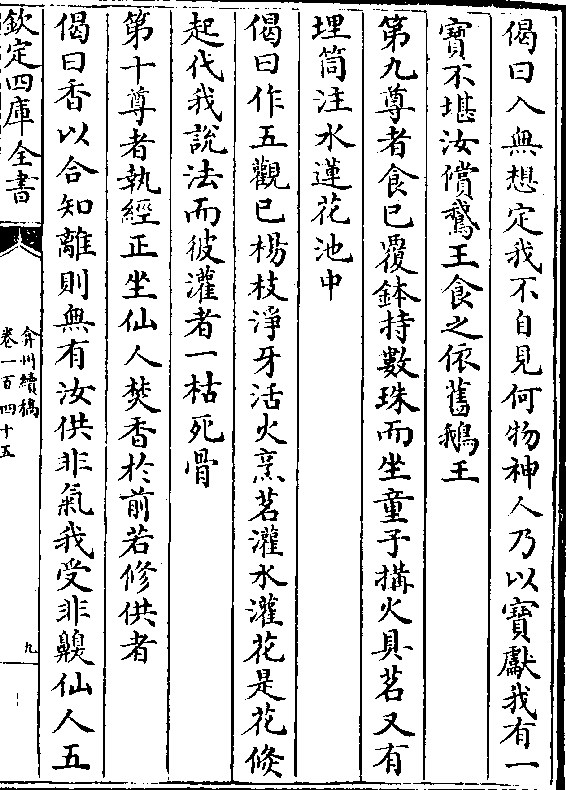 偈曰入無想定我不自見何物神人乃以寶獻我有一
寶不堪汝償鵞王食之依舊鵝王
第九尊者食已覆鉢持數珠而坐童子搆火具茗又有
埋筒注水蓮花池中
偈曰作五觀已楊枝淨牙活火烹茗灌水灌花是花倐
起代我說法而彼灌者一枯死骨
第十尊者執經正坐仙人焚香於前若修供者
偈曰香以合知離則無有汝供非氣我受非齅仙人五
欽定四庫全書
弇州續稿
卷一百四十五
九